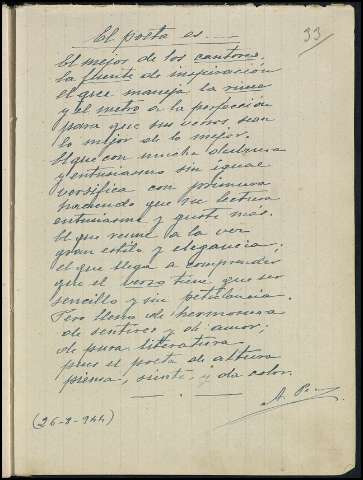 33
El poeta es....
El mejor de los cantores,
la fuente de inspiración
el que maneja la rima
y el metro a la perfección
para que sus versos sean
lo mejor de lo mejor.
El que con mucha destreza
y entusiasmo sin igual
versifica con primura
haciendo que su lectura
entusiasme y guste más.
El que reune a la vez
gran estilo y elegancia;
el que llega a comprender
que el verso tiene que ser
sencillo y sin petulancia.
Pero lleno de hermosura
de sentires y de amor;
de pura literatura,
pues el poeta de altura
piensa, siente, y da color.
(26-9-944)